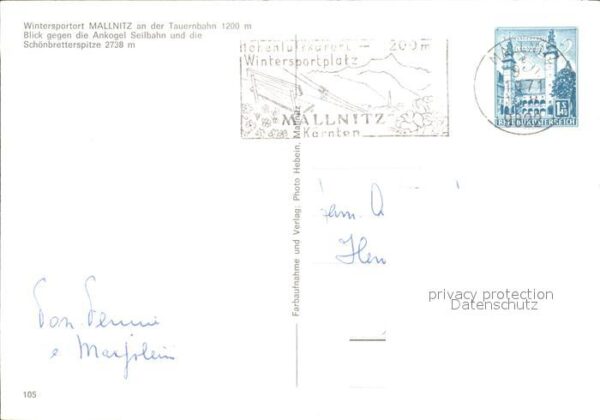 Wintersportort MALLNITZ an der Tauernbahn 1200 m
Blick gegen die Ankogel Seilbahn und die
Schönbretterspitze 2738 m
Höhenluftkurort - 1200m
Wintersportplatz
MALLNITZ
Kärnten
REPUBLIK ÖSTERREICH
Farbaufnahme und Verlag: Photo Hebein, Mallnitz
Fam.
privacy protection
Datenschutz
e Marjolein
105